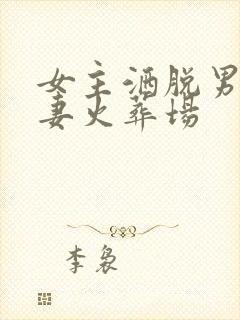 女主洒脱男
妻火葬场
李袅